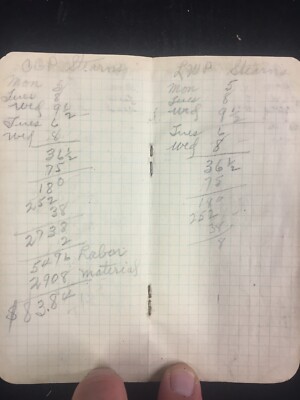 Mon 5
Tues 8
Wed 9 1/2
Tues 6
Wed 8
36 1/2
75
180
252
38
2738
2
5476 Labor
2908 Material
$83.84
Mon 5
Tues 8
Wed 9 1/2
Tues 6
Wed 8
36 1/2
75
180
252
38
8